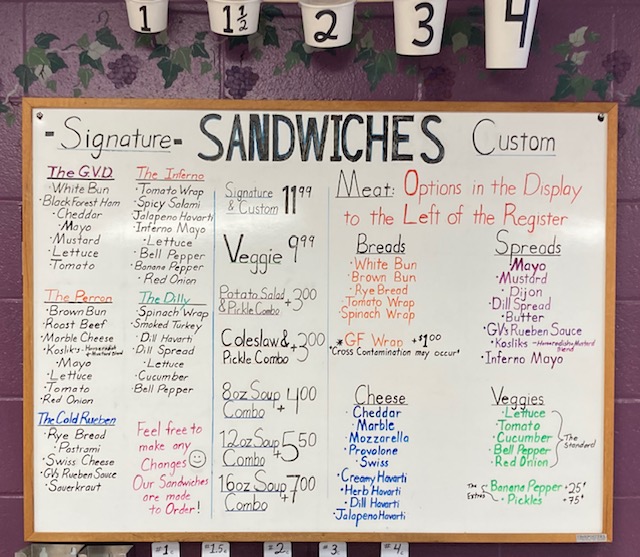 1
1 1/2
2
3
4
-Signature-
SANDWICHES
Custom
The G.V.D.
·White Bun
·Black Forest Ham
·Cheddar
·Mayo
·Mustard
·Lettuce
·Tomato
The Inferno
·Tomato Wrap
·Spicy Salami
·Jalapeno Havarti
·Inferno Mayo
·Lettuce
·Bell Pepper
·Banana Pepper
·Red Onion
The Perron
·Brown Bun
·Roast Beef
·Marble Cheese
·Kosliks -Horseradish & Mustard Blend
·Mayo
·Lettuce
·Tomato
·Red Onion
The Dilly
·Spinach Wrap
·Smoked Turkey
·Dill Havarti
·Dill Spread
·Lettuce
·Cucumber
·Bell Pepper
The Cold Rueben
·Rye Bread
·Pastrami
·Swiss Cheese
·GV's Rueben Sauce
·Sauerkraut
Feel free to
make any
Changes
Our Sandwiches
are made
to Order!
Signature
& Custom 11.99
Veggie 9.99
Potato Salad
& Pickle Combo +3.00
Coleslaw &
Pickle Combo +3.00
8oz Soup
Combo +4.00
12oz Soup
Combo +5.50
16oz Soup
Combo +7.00
Meat: Options in the Display
to the Left of the Register
Breads
·White Bun
·Brown Bun
·Rye Bread
·Tomato Wrap
·Spinach Wrap
*GF Wrap +$1.00
*Cross Contamination may occur*
Spreads
·Mayo
·Mustard
·Dijon
·Dill Spread
·Butter
·GV's Rueben Sauce
·Kosliks -Horseradish & Mustard Blend
·Inferno Mayo
Cheese
·Cheddar
·Marble
·Mozzarella
·Provolone
·Swiss
·Creamy Havarti
·Herb Havarti
·Dill Havarti
·Jalapeno Havarti
Veggies
·Lettuce
·Tomato
·Cucumber
·Bell Pepper
·Red Onion
The Standard
The Extras
·Banana Pepper +.25¢
·Pickles +.75¢
#1
#1.5
#2
#3
#4